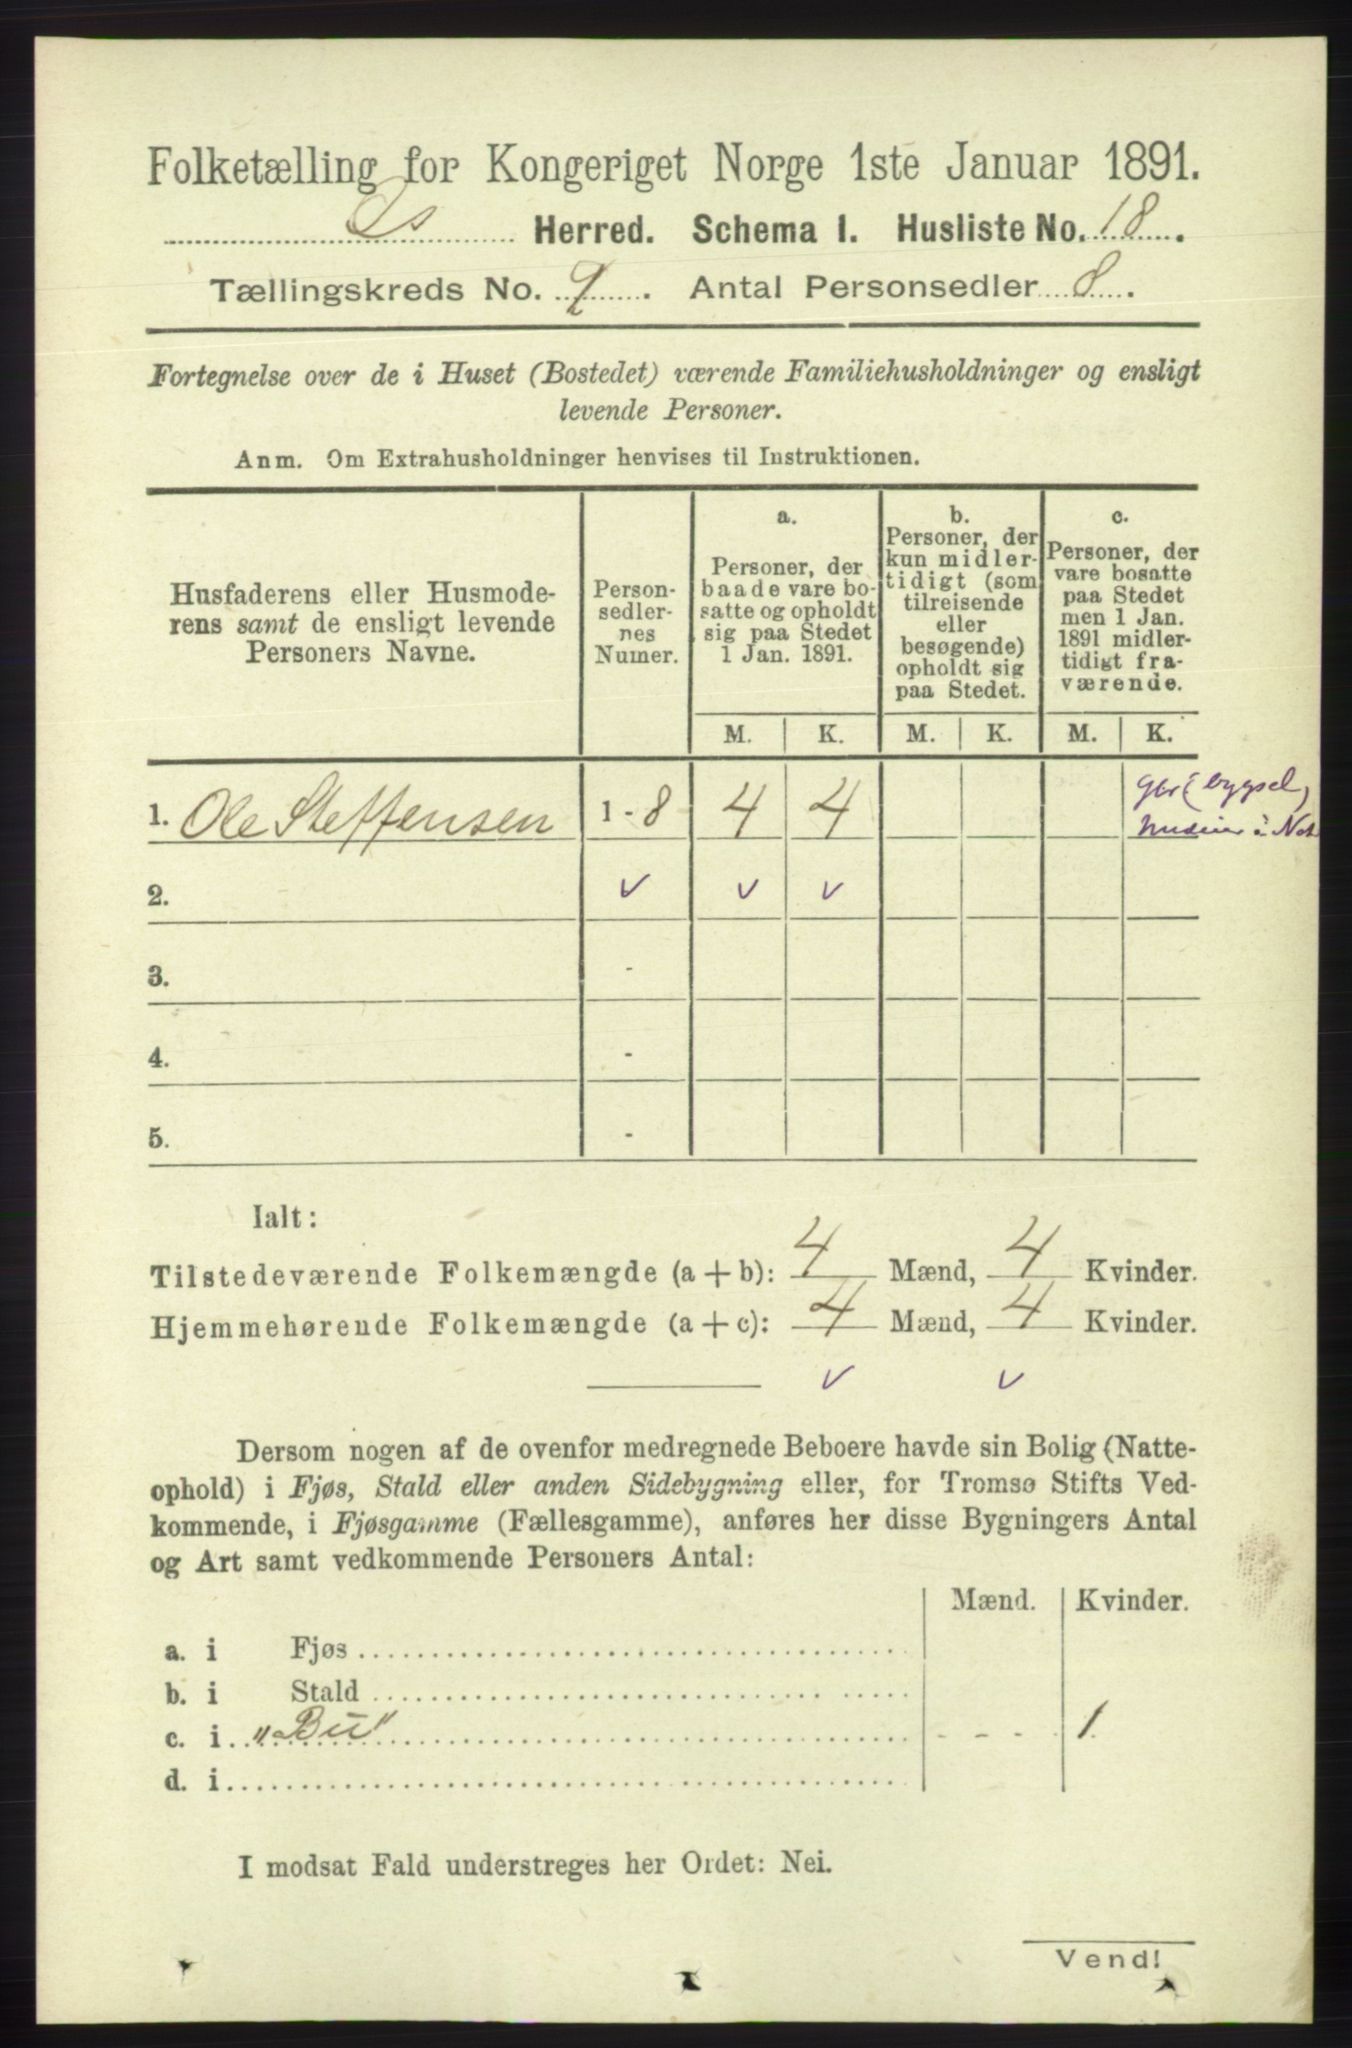 Folketælling for Kongeriget Norge 1ste Januar 1891.
Os Herred. Schema I. Husliste No. 18.
Tællingskreds No. 9. Antal Personsedler 8.
Fortegnelse over de i Huset (Bostedet) værende Familiehusholdninger og ensligt
levende Personer.
Anm. Om Extrahusholdninger henvises til Instruktionen.
Husfaderens eller Husmode-
rens samt de ensligt levende
Personers Navne.
Person-
sedler-
nes
Numer.
a.
Personer, der
baade vare bo-
satte og opholdt
sig paa Stedet
1 Jan. 1891.
b.
Personer, der
kun midler-
tidigt (som
tilreisende
eller
besøgende)
opholdt sig
paa Stedet.
c.
Personer, der
vare bosatte
paa Stedet
men 1 Jan.
1891 midler-
tidigt fra-
værende.
M. K. M. K. M. K.
1. Ole Steffensen 1 - 8 4 4
2. v v v
3. -
4. -
5. -
Ialt:
Tilstedeværende Folkemængde (a + b): 4 Mænd, 4 Kvinder.
Hjemmehørende Folkemængde (a + c): 4 Mænd, 4 Kvinder.
v v
Dersom nogen af de ovenfor medregnede Beboere havde sin Bolig (Natte-
ophold) i Fjøs, Stald eller anden Sidebygning eller, for Tromsø Stifts Ved-
kommende, i Fjøsgamme (Fællesgamme), anføres her disse Bygningers Antal
og Art samt vedkommende Personers Antal:
Mænd. Kvinder.
a. i Fjøs
b. i Stald
c. i "Bu" - - - - 1.
d. i
I modsat Fald understreges her Ordet: Nei.
Vend!